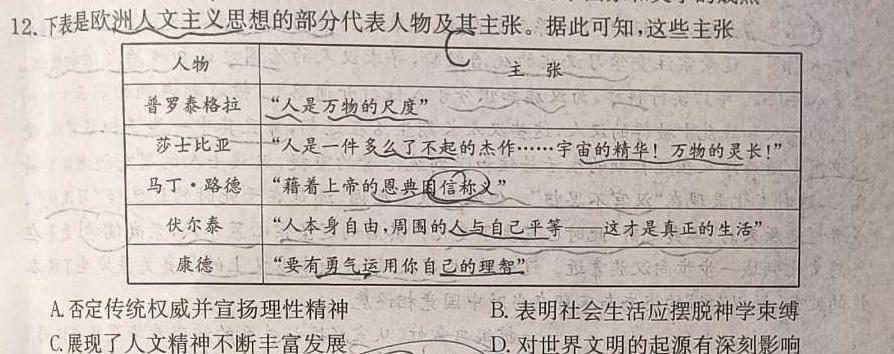 12.下表是欧洲人文主义思想的部分代表人物及其主张。据此可知,这些主张
人物 主张
普罗泰格拉 “人是万物的尺度”
莎士比亚 “人是一件多么了不起的杰作……宇宙的精华！万物的灵长!”
马丁·路德 “藉着上帝的恩典因信称义”
伏尔泰 “人本身自由,周围的人与自己平等——这才是真正的生活”
康德 “要有勇气运用你自己的理智”
A.否定传统权威并宣扬理性精神 B.表明社会生活应摆脱神学束缚
C.展现了人文精神不断丰富发展 D.对世界文明的起源有深刻影响